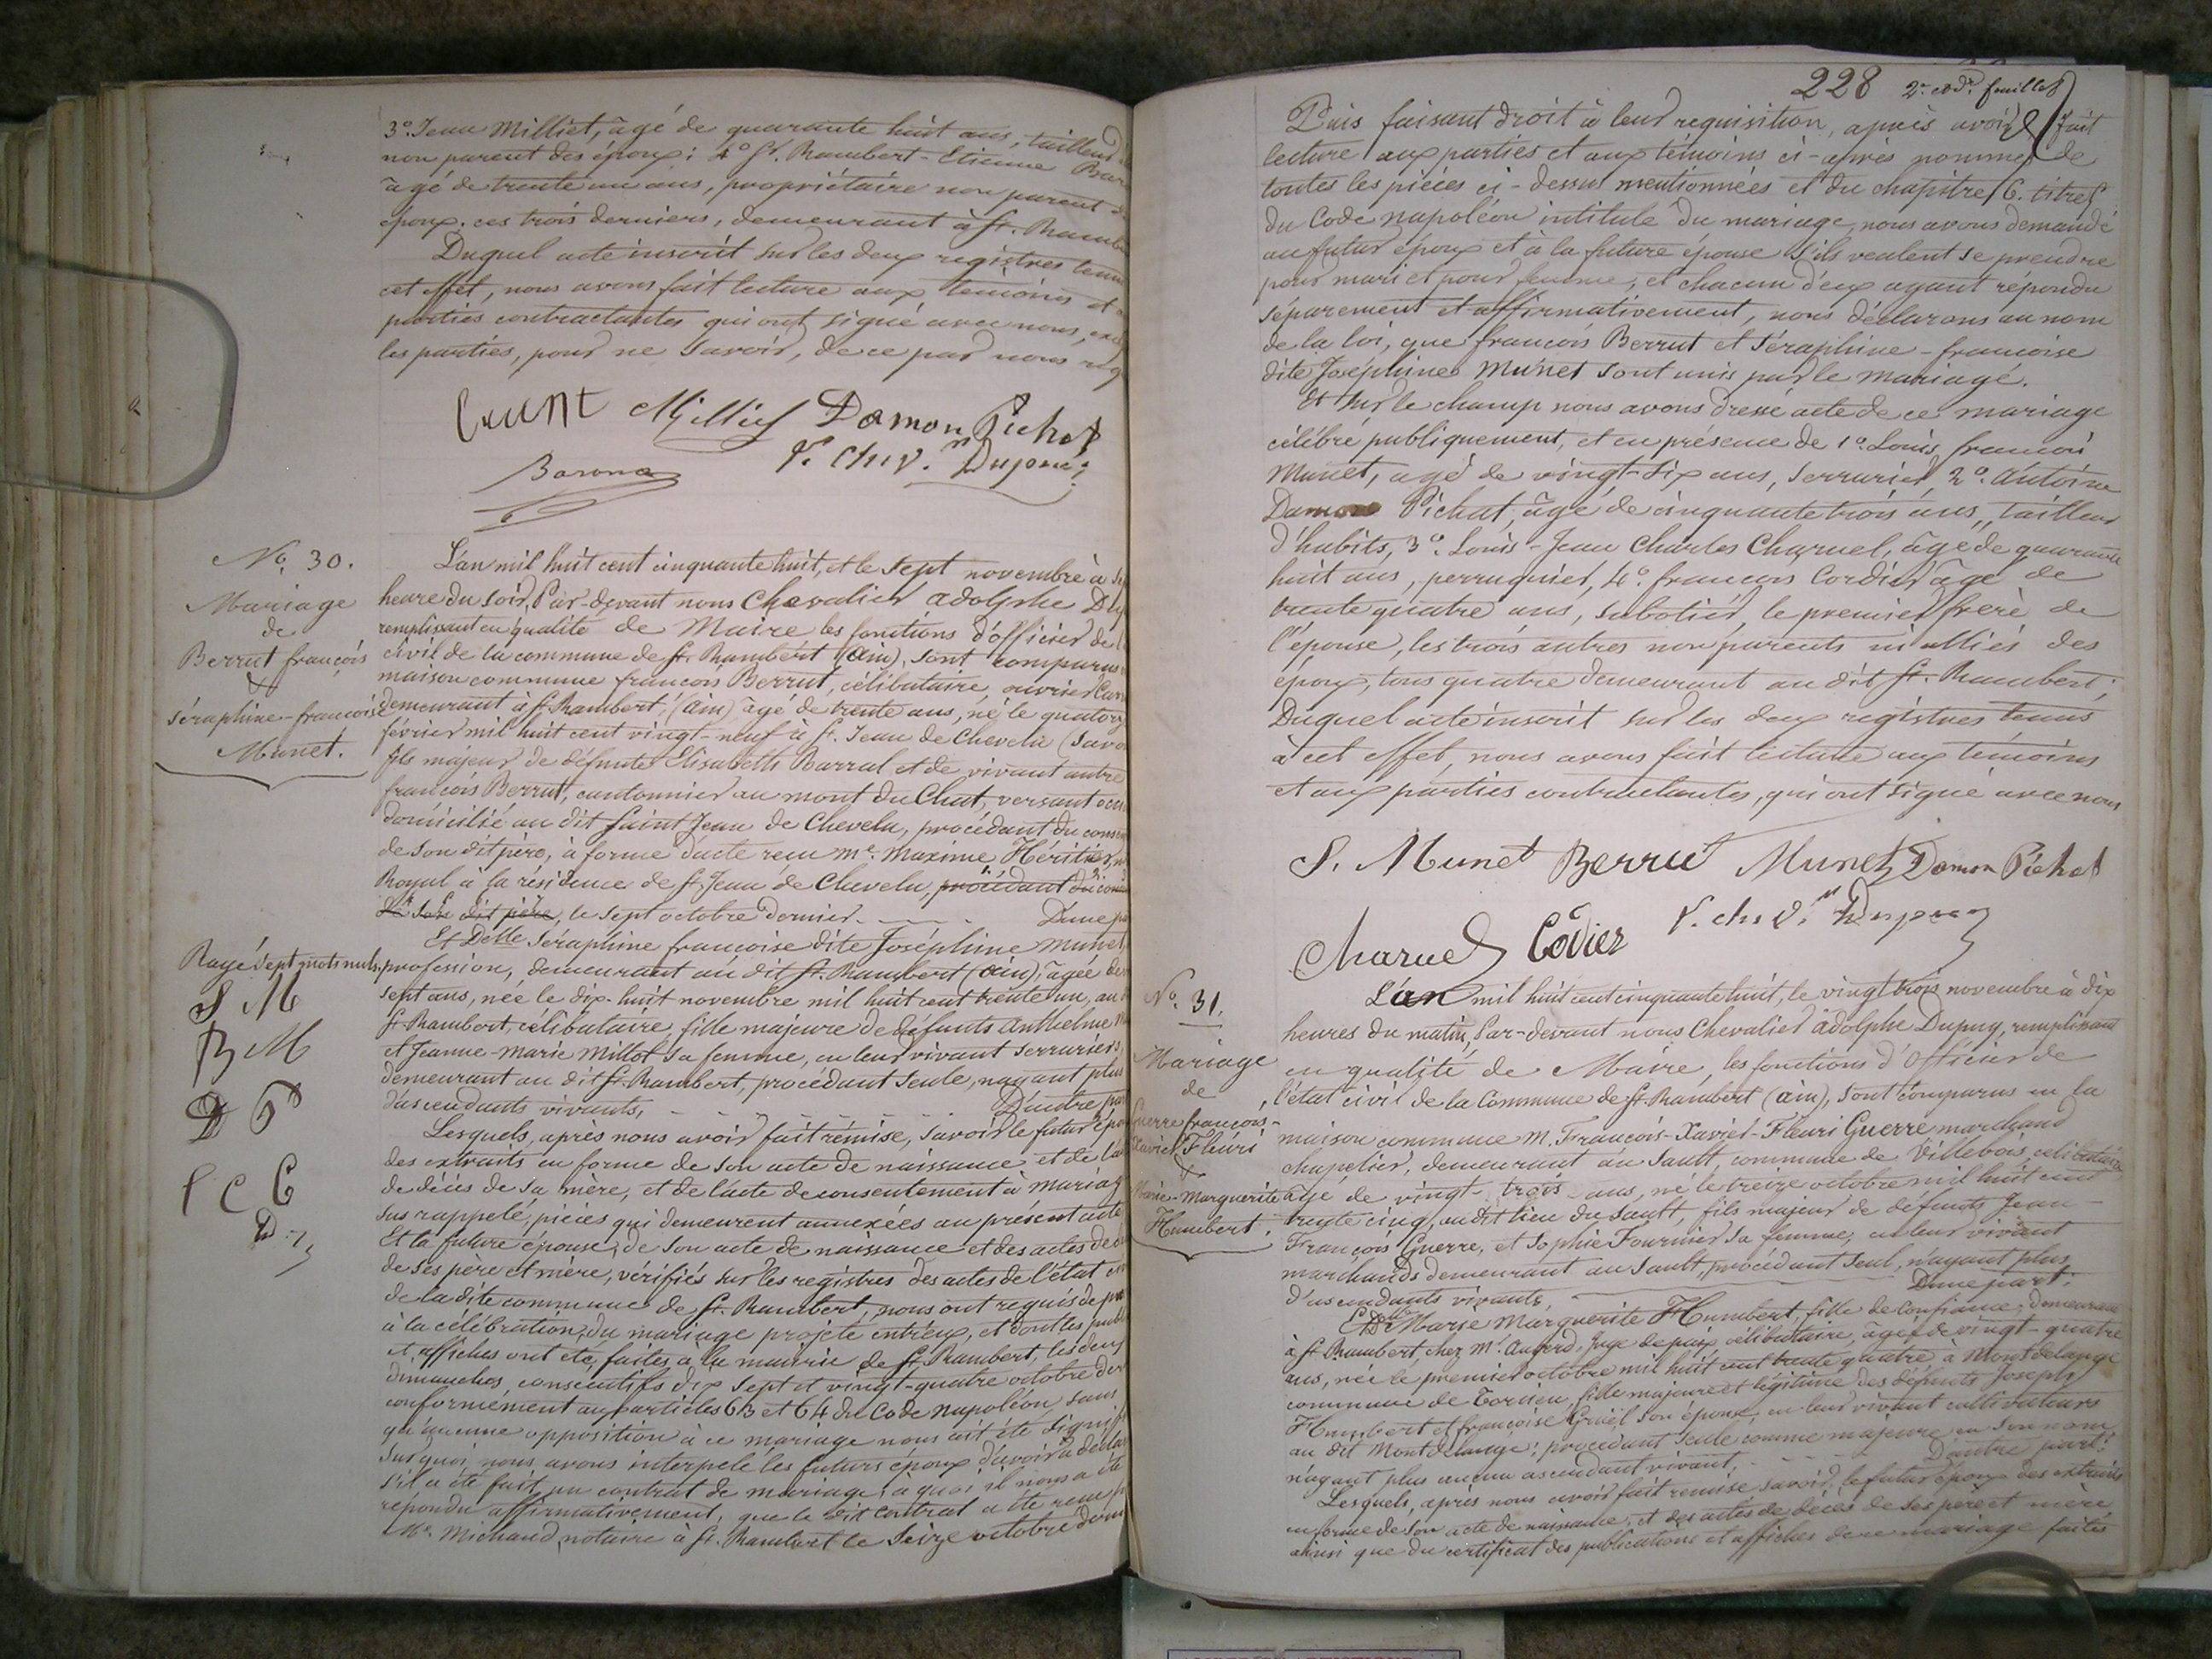 3º. Jean Milliet, âgé de quarante huit ans, tailleur
non parent des époux; 4º St. Rambert-Etienne Bar
âgé de trente un ans, propriétaire non parent
époux. ces trois derniers, demeurant à St. Rambe
Duquel acte inscrit sur les deux registres tenu
cet effet, nous avons fait lecture aux témoins et
parties contractantes qui ont signé avec nous, exc
les parties, pour ne savoir, de ce par nous req
Milliet Damon Pichat
Barona P. Chev. Dupuy
Nº. 30.
Mariage
de
Berrut françois
&
Séraphine-françoise
Munet.
L'an mil huit cent cinquante huit, et le sept novembre à
heure du soir, Par-devant nous Chevalier adolphe Du
remplissant en qualité de Maire les fonctions d'officier de l
civil de la commune de St. Rambert (ain), sont comparus
maison commune francois Berrut, célibataire, ouvrier
demeurant à St. Rambert, (ain) âgé de trente ans, né le quator
février mil huit cent vingt-neuf à St. Jean de Chevelu (Savo
fils majeur de défunte Elisabeth Barral et de vivant autre
francois Berrut, cantonnier au mont du Chat, versant
domicilié au dit Saint Jean de Chevelu, procédant du conse
de son dit père, à forme d'acte reçu me. Maxime Héritier,
Royal à la résidence de St. Jean de Chevelu, procédant du con
de son dit père, le sept octobre dernier. D'une pa
Et Delle Séraphine francoise dite Joséphine Munet,
Rayé sept mots nuls.
profession, demeurant au dit St. Rambert (ain), âgée de
sept ans, née le dix-huit novembre mil huit cent trente un, au
St. Rambert, célibataire, fille majeure de défunts Anthelme
et Jeanne-Marie Millot sa femme, en leur vivant serruriers,
demeurant au dit St. Rambert, procédant seule, n'ayant plus
d'ascendants vivants, D'autre par
S M
B M
D P
C C
D
Lesquels, après nous avoir fait rémise, savoir le futur épo
des extraits en forme de son acte de naissance et de l'a
de décès de sa mère, et de l'acte de consentement à mariag
sus rappelé, pièces qui demeurent annexées au présent acte
Et la future épouse, de son acte de naissance et des actes de
de ses père et mère, vérifiés sur les registres des actes de l'état
de la dite commune de St. Rambert, nous ont requis de pro
à la célébration du mariage projeté entr'eux, et dont les pub
et affiches ont été faites à la mairie de St. Rambert, les deux
dimanches consécutifs dix sept et vingt-quatre octobre der
conformément aux articles 63 et 64 du Code Napoléon, sans
qu'aucune opposition à ce mariage nous ait été signif
Sur quoi nous avons interpelé les futurs époux d'avoir à décla
s'il a été fait un contrat de mariage, à quoi il nous a été
répondu affirmativement, que le dit contrat a été reçu p
Me. Michaud notaire à St. Rambert le seize octobre derni
228 feuillet
Puis faisant droit à leur requisition, après avoir fait
lecture aux parties et aux témoins ci-après nommés de
toutes les pièces ci-dessus mentionnées et du chapitre 6. titre
du Code napoléon intitulé du mariage, nous avons demandé
au futur époux et à la future épouse s'ils veulent se prendre
pour mari et pour femme, et chacun d'eux ayant répondu
séparement et affirmativement, nous déclarons au nom
de la loi, que francois Berrut et Séraphine-francoise
dite Joséphine Munet sont unis par le mariage.
Et sur le champ nous avons dressé acte de ce mariage
célébré publiquement, et en présence de 1º. Louis francois
Munet, agé de vingt-six ans, serrurier, 2º. Antoine
Damon Pichat, âgé de cinquante trois ans, tailleur
d'habits, 3º. Louis-Jean Charles Charuel, âgé de quarante
huit ans, perruquier, 4º. francois Cordier âgé de
trente quatre ans, sabotier, le premier frère de
l'épouse, les trois autres non parents ni alliés des
époux, tous quatre demeurant au dit St. Rambert;
Duquel acte inscrit sur les deux registres tenus
à cet effet, nous avons fait lecture aux témoins
et aux parties contractantes, qui ont signé avec nous
S. Munet Berrut Munet Damon Pichat
Charuel Codier P. chev. Dupuy
Nº. 31.
Mariage
de
Guerre françois-
Xavier Fleuri
&
Marie-Marguerite
Humbert.
L'an mil huit cent cinquante huit, le vingt trois novembre à dix
heures du matin, Par-devant nous Chevalier adolphe Dupuy, remplissant
en qualité de Maire, les fonctions d'Officier de
l'état civil de la Commune de St. Rambert (ain), sont comparus en la
maison commune M. François-Xavier-Fleuri Guerre marchand
chapelier, demeurant au Sault, commune de Villebois, célibataire
âgé de vingt-trois ans, né le treize octobre mil huit cent
trente cinq, au dit lieu du Sault, fils majeur de défunts Jean
François Guerre, et Sophie Fournier sa femme, en leur vivant
marchands demeurant au Sault, procédant seul, n'ayant plus
d'ascendants vivants, D'une part.
Et Delle Marie Marguerite Humbert, fille de confiance, demeurant
à St. Rambert, chez Mr. Augerd, Juge de paix, célibataire, âgée de vingt-quatre
ans, née le premier octobre mil huit cent trente quatre à Montdelange
commune de Torcieu, fille majeure et légitime des défunts Joseph
Humbert et françoise Gruël son épouse, en leur vivant cultivateurs
au dit Montdelange; procédant seule comme majeure en son nom
n'ayant plus aucun ascendant vivant, D'autre part.
Lesquels, après nous avoir fait remise savoir, le futur époux des extraits
en forme de son acte de naissance, et des actes de décès de ses père et mère
ainsi que du certificat des publications et affiches de ce mariage faites